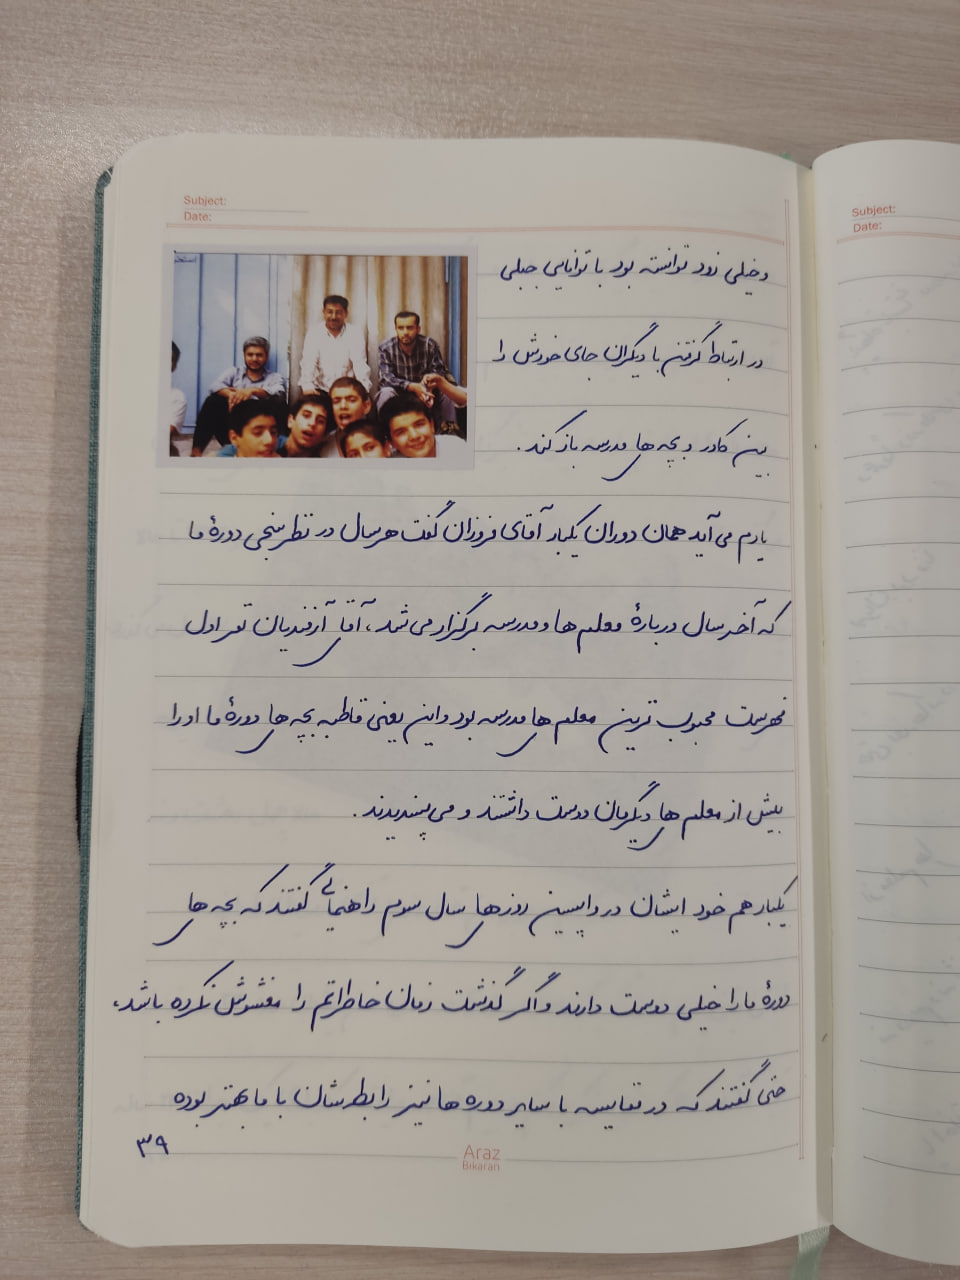 Subject:
Date:
و خیلی زود توانسته بود با توانایی جبلی
در ارتباط گرفتن با دیگران جای خودش را
بین کادر و بچه های مدرسه باز کند.
یادم می‌آید همان دوران یکبار آقای فروزان گفت هر سال در نظرسنجی دورهٔ ما
که آخر سال دربارهٔ معلم ها و مدرسه برگزار می‌شد، آقای آزفندیان نفر اول
فهرست محبوب ترین معلم های مدرسه بود و این یعنی قاطبه بچه های دورهٔ ما او را
بیش از معلم های دیگرمان دوست داشتند و می‌پسندیدند.
یکبار هم خود ایشان در واپسین روزهای سال سوم راهنمائی گفتند که بچه های
دورهٔ ما را خیلی دوست دارند و اگر گذشت زمان خاطراتم را مغشوش نکرده باشد،
حتی گفتند که در مقایسه با سایر دوره ها نیز رابطه‌شان با ما بهتر بوده
۳۹
Araz
Bikaran
Subject:
Date: